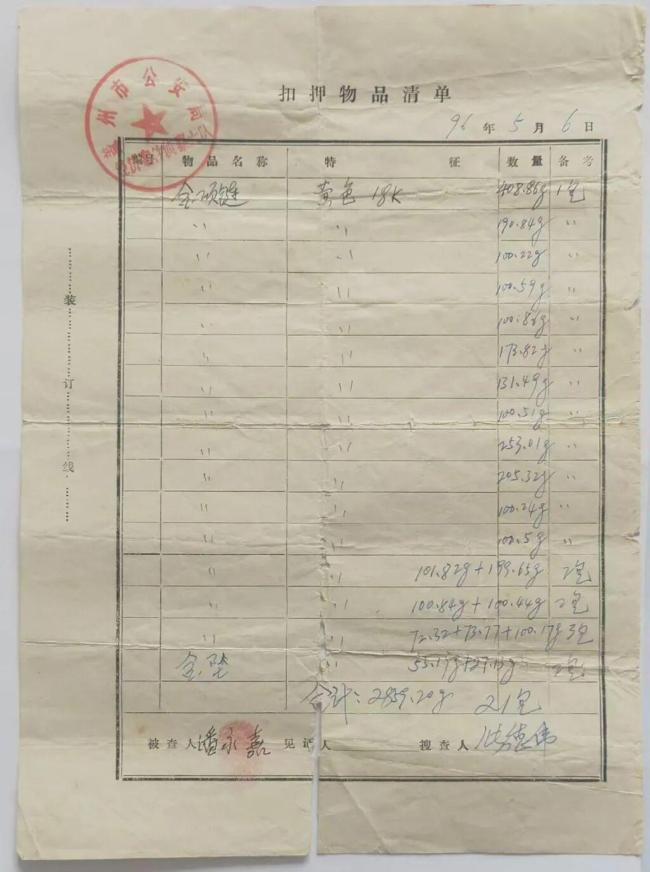 扣押物品清单
96年5月6日
编号 物品名称 特征 数量 备考
金项链 黄色 18K 408.86g 1包
〃 〃 190.84g 〃
〃 〃 100.22g 〃
〃 〃 100.59g 〃
〃 〃 100.86g 〃
〃 〃 173.82g 〃
〃 〃 131.49g 〃
〃 〃 100.51g 〃
〃 〃 253.01g 〃
〃 〃 205.32g 〃
〃 〃 100.24g 〃
〃 〃 100.5g 〃
〃 〃 101.82g+199.65g 2包
〃 〃 100.84g+100.44g 2包
〃 〃 72.32+73.77+100.17g 3包
〃 2包
合计:2859.20g 21包
被查人 潘永嘉 见证人 搜查人 德伟
装订线
州市公安局